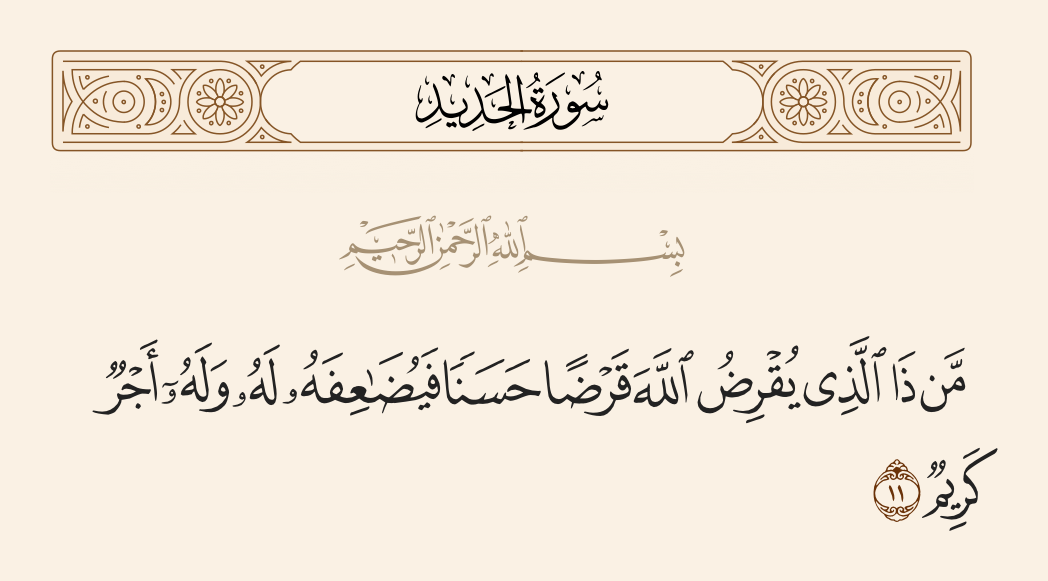 سُورَةُ الحَدِيدِ
بِسْمِ ٱللَّهِ ٱلرَّحْمَٰنِ ٱلرَّحِيمِ
مَّن ذَا ٱلَّذِى يُقْرِضُ ٱللَّهَ قَرْضًا حَسَنَا فَيُضَٰعِفَهُۥ لَهُۥ وَلَهُۥٓ أَجْرٌ
كَرِيمٌ ١١